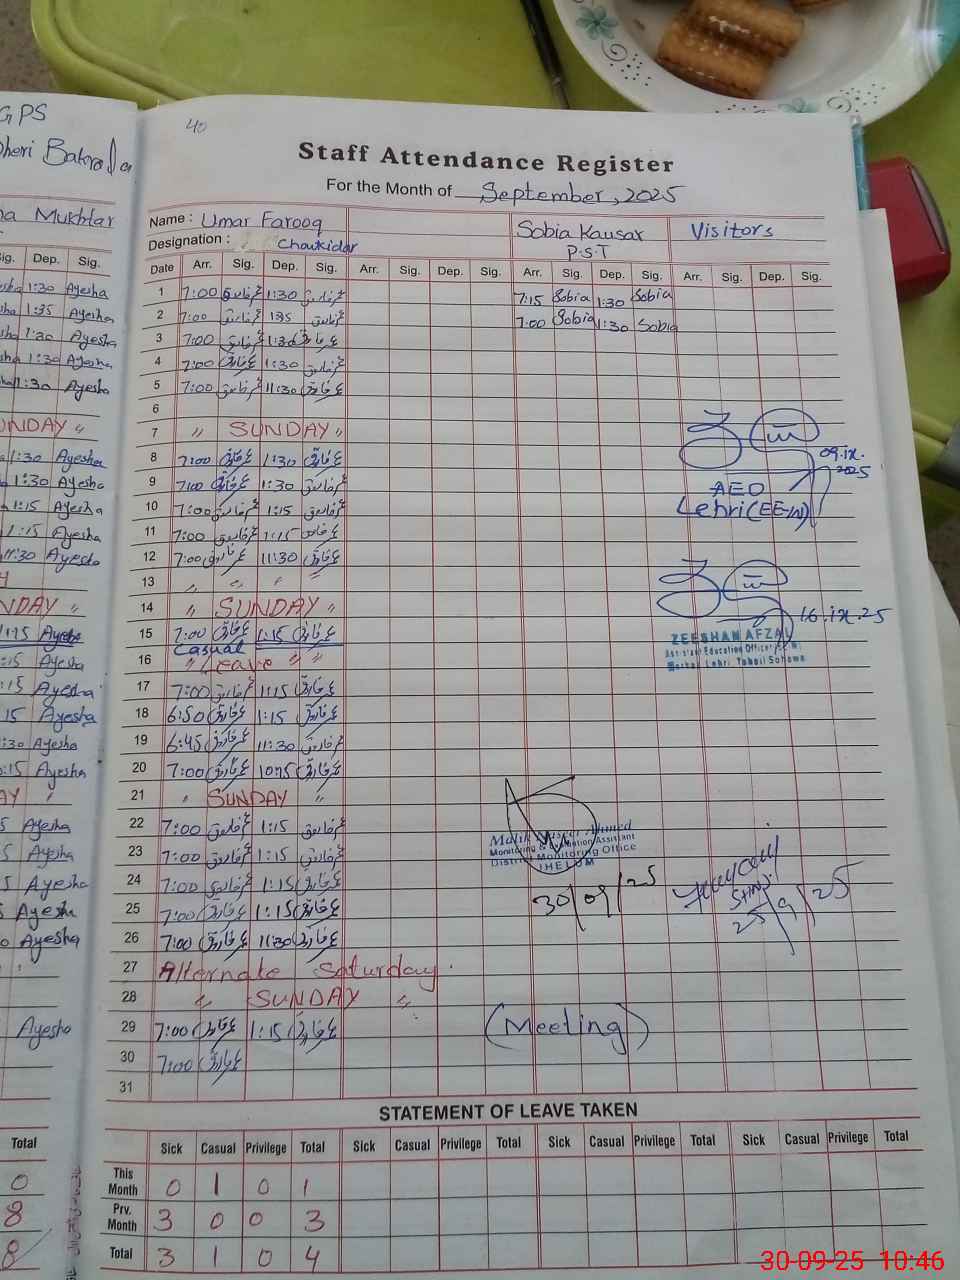 GPS
40
Staff Attendance Register
For the Month of September, 2025
Mukhtar
Name : Umar Farooq Sobia Kausar Visitors
Designation : Choukidar P.S.T
Sig. Dep. Sig.
Date Arr. Sig. Dep. Sig. Arr. Sig. Dep. Sig. Arr. Sig. Dep. Sig. Arr. Sig. Dep. Sig.
1:30 Ayesha 1 7:00 عمر فاروق 1:30 عمر فاروق 7:15 Sobia 1:30 Sobia
1:35 Ayesha 2 7:00 عمر فاروق 1:35 عمر فاروق 7:00 Sobia 1:30 Sobia
Ayesha 3 7:00 عمر فاروق 1:30 عمر فاروق
1:30 Ayesha 4 7:00 عمر فاروق 1:30 عمر فاروق
11:30 Ayesha 5 7:00 عمر فاروق 11:30 عمر فاروق
6
SUNDAY 〃 7 〃 SUNDAY 〃
1:30 Ayesha 8 7:00 عمر فاروق 1:30 عمر فاروق 09.ix.2025
1:30 Ayesha 9 7:00 عمر فاروق 1:30 عمر فاروق AEO
1:15 Ayesha 10 7:00 عمر فاروق 1:15 عمر فاروق Lehri (EE-W)
1:15 Ayesha 11 7:00 عمر فاروق 1:15 عمر فاروق
11:30 Ayesha 12 7:00 عمر فاروق 11:30 عمر فاروق
13 〃 〃 〃 〃
SUNDAY 〃 14 〃 SUNDAY 〃
1:15 Ayesha 15 7:00 عمر فاروق 1:15 عمر فاروق 16.ix.25
:15 Ayesha 16 〃 Casual Leave 〃 〃 ZEESHAN AFZAL
Assistant Education Officer
Markaz Lehri, Tehsil Sohawa
:15 Ayesha 17 7:00 عمر فاروق 1:15 عمر فاروق
15 Ayesha 18 6:50 عمر فاروق 1:15 عمر فاروق
:30 Ayesha 19 6:45 عمر فاروق 11:30 عمر فاروق
:15 Ayesha 20 7:00 عمر فاروق 10:15 عمر فاروق
21 〃 SUNDAY 〃
Ayesha 22 7:00 عمر فاروق 1:15 عمر فاروق
Ayesha 23 7:00 عمر فاروق 1:15 عمر فاروق
Monitoring & Evaluation Assistant
District Monitoring Office
JHELUM
Ayesha 24 7:00 عمر فاروق 1:15 عمر فاروق
Ayesha 25 7:00 عمر فاروق 1:15 عمر فاروق 30/09/25 25/9/25
Ayesha 26 7:00 عمر فاروق 11:30 عمر فاروق
27 Alternate Saturday.
28 〃 SUNDAY 〃
Ayesha 29 7:00 عمر فاروق 1:15 عمر فاروق (Meeting)
30 7:00 عمر فاروق
31
STATEMENT OF LEAVE TAKEN
Total Sick Casual Privilege Total Sick Casual Privilege Total Sick Casual Privilege Total Sick Casual Privilege Total
0 This Month 0 1 0 1
8 Prv. Month 3 0 0 3
8 Total 3 1 0 4
30-09-25 10:46